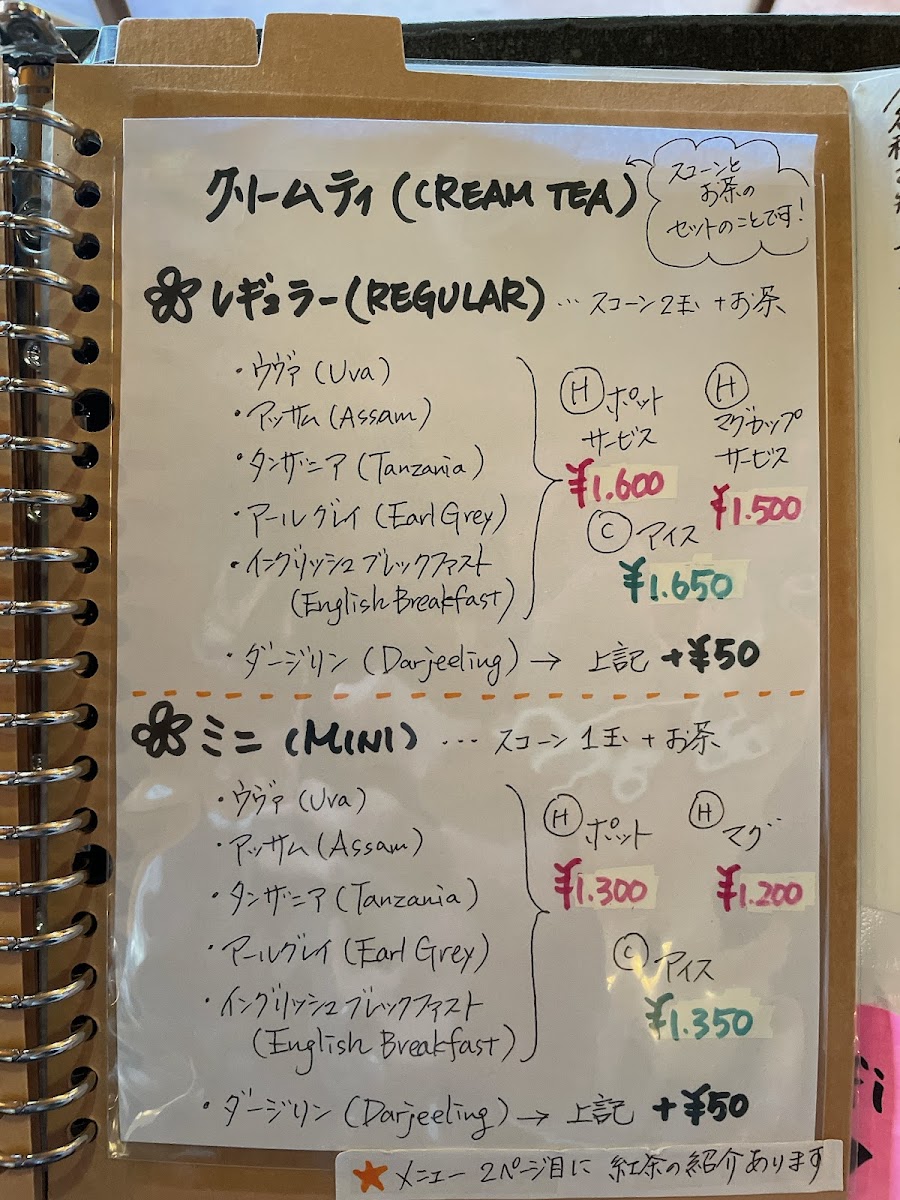 クリームティ (CREAM TEA)
スコーンと
お茶の
セットのことです!
レギュラー (REGULAR) … スコーン2玉 + お茶
・ウヴァ (Uva)
・アッサム (Assam)
・タンザニア (Tanzania)
・アールグレイ (Earl Grey)
・イングリッシュブレックファスト
(English Breakfast)
Ⓗ ポット
サービス
¥1.600
Ⓗ
マグカップ
サービス
¥1.500
Ⓒ アイス
¥1.650
・ダージリン (Darjeeling) → 上記 +¥50
ミニ (MINI) … スコーン 1玉 + お茶
・ウヴァ (Uva)
・アッサム (Assam)
・タンザニア (Tanzania)
・アールグレイ (Earl Grey)
・イングリッシュブレックファスト
(English Breakfast)
Ⓗ ポット
¥1.300
Ⓗ マグ
¥1.200
Ⓒ アイス
¥1.350
・ダージリン (Darjeeling) → 上記 +¥50
★ メニュー 2ページ目に 紅茶の紹介あります